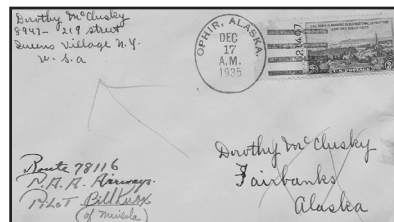 Dorothy McClusky
8947- 219 street
Queens Village N.Y.
U.S.a
OPHIR, ALASKA.
DEC
17
A.M.
1935
Route 78116
P.A.A. Airways.
PILOT Bill Knox
Dorothy McClusky
Fairbanks
Alaska